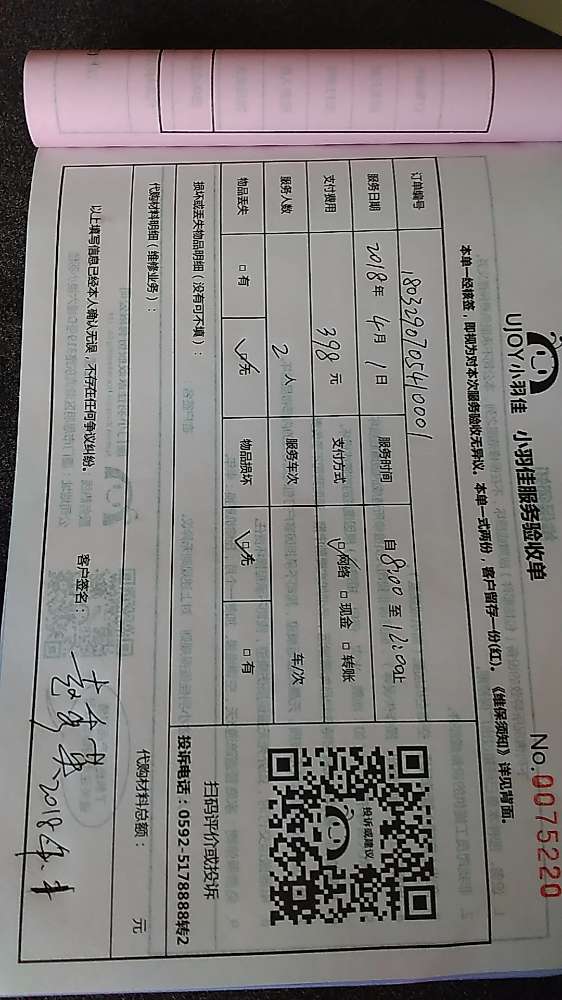 UJOY小羽佳 小羽佳服务验收单 No.0075220
本单一经核签，即视为对本次服务验收无异议。本单一式两份，客户留存一份(红)。《维保须知》详见背面。
订单编号 1803290705410001
服务日期 2018年 4月 1日 服务时间 自8:00至12:00止
支付费用 398元 支付方式 ☑网络 □现金 □转账
服务人数 2人 服务车次 车/次
物品丢失 □有 ☑无 物品损坏 ☑无 □有
投诉或建议
扫码评价或投诉
投诉电话：0592-5178888转2
损坏或丢失物品明细（没有可不填）：
代购材料明细（维修业务）： 代购材料总额： 元
以上填写信息已经本人确认无误，不存在任何争议纠纷。 客户签名：
2018年